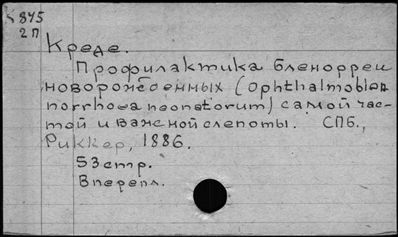 875
2П
Креде.
Профилактика бленорреи
новорожденных (ophthalmoblen
norrhoea neonatorum) самой час-
той и важной слепоты. СПб.,
Риккер, 1886.
53 стр.
В перепл.